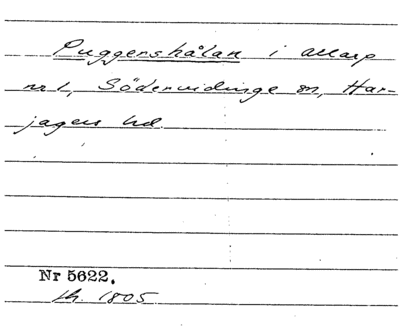 Puggershålan i Allarp
nr 1, Södervidinge sn, Har-
jagers hd.
Nr 5622.
th. 1805